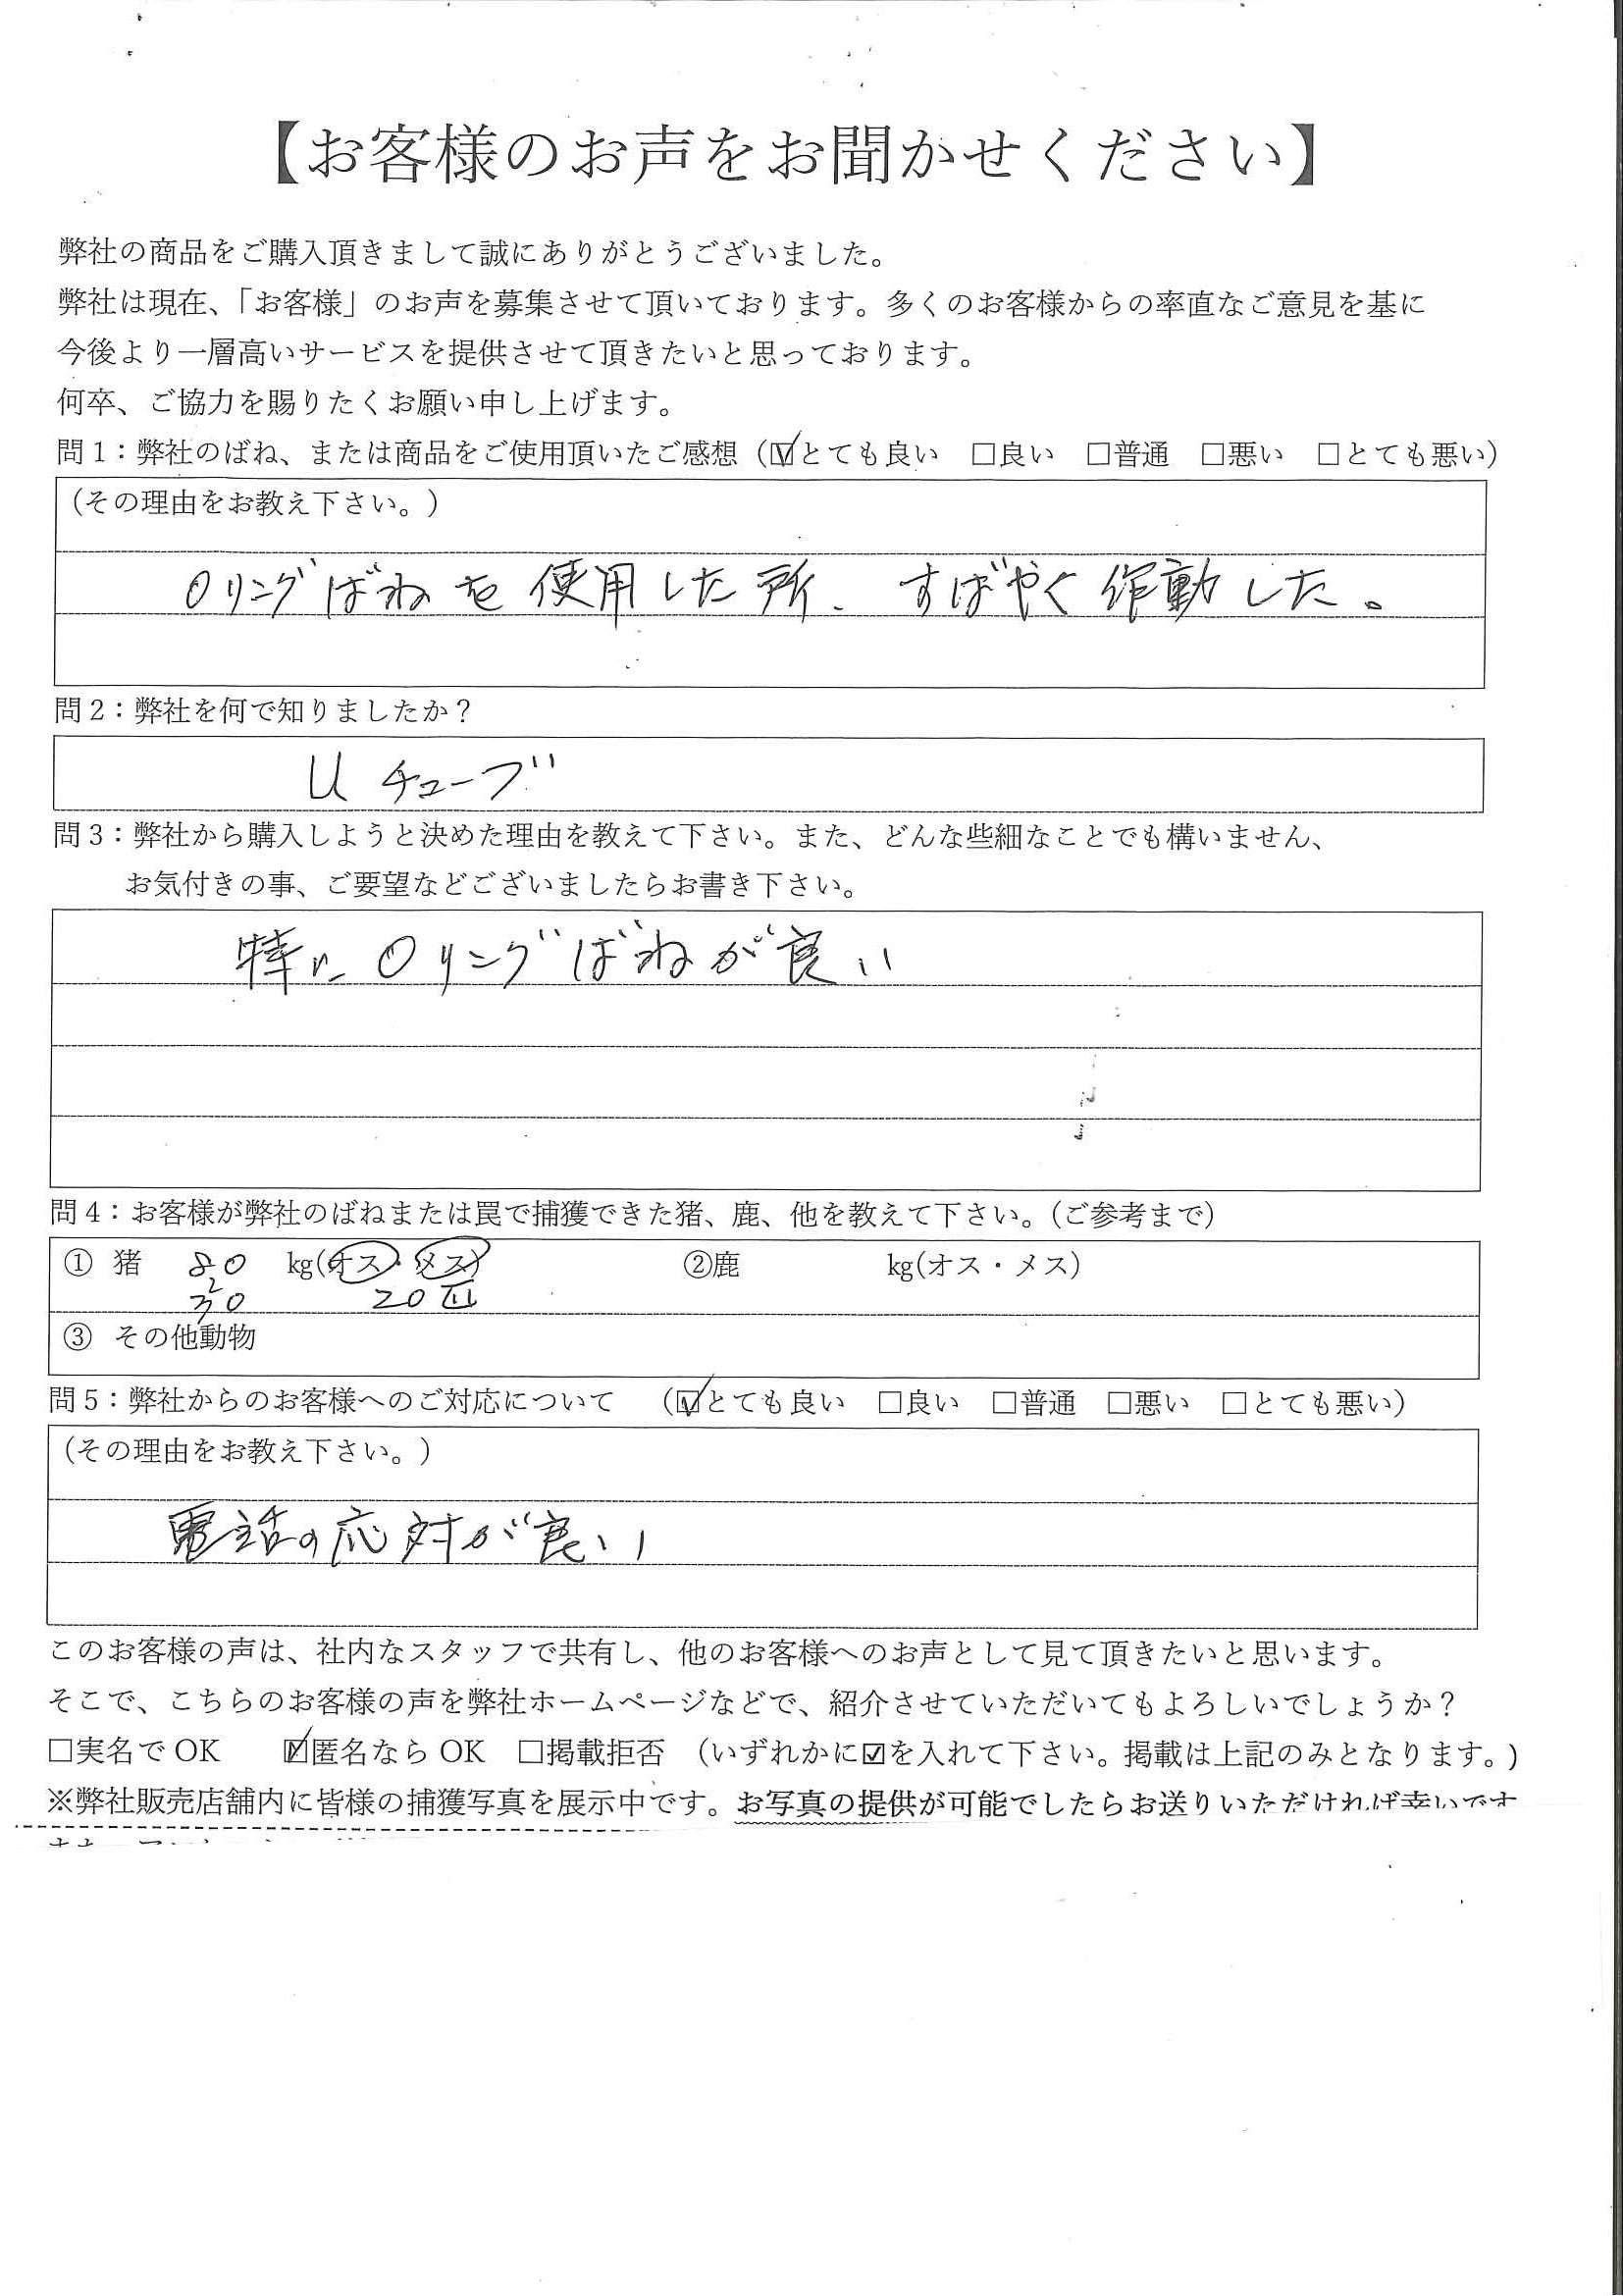 【お客様のお声をお聞かせください】
弊社の商品をご購入頂きまして誠にありがとうございました。
弊社は現在、「お客様」のお声を募集させて頂いております。多くのお客様からの率直なご意見を基に
今後より一層高いサービスを提供させて頂きたいと思っております。
何卒、ご協力を賜りたくお願い申し上げます。
問1:弊社のばね、または商品をご使用頂いたご感想(☑とても良い □良い □普通 □悪い □とても悪い)
(その理由をお教え下さい。)
Oリングばねを使用した所、すばやく作動した。
問2:弊社を何で知りましたか?
Uチューブ
問3:弊社から購入しようと決めた理由を教えて下さい。また、どんな些細なことでも構いません、
お気付きの事、ご要望などございましたらお書き下さい。
特にOリングばねが良い
問4:お客様が弊社のばねまたは罠で捕獲できた猪、鹿、他を教えて下さい。(ご参考まで)
① 猪 80 kg(オス・メス) ②鹿 kg(オス・メス)
30 20匹
③ その他動物
問5:弊社からのお客様へのご対応について (☑とても良い □良い □普通 □悪い □とても悪い)
(その理由をお教え下さい。)
電話の応対が良い
このお客様の声は、社内なスタッフで共有し、他のお客様へのお声として見て頂きたいと思います。
そこで、こちらのお客様の声を弊社ホームページなどで、紹介させていただいてもよろしいでしょうか?
□実名でOK ☑匿名ならOK □掲載拒否 (いずれかに☑を入れて下さい。掲載は上記のみとなります。)
※弊社販売店舗内に皆様の捕獲写真を展示中です。お写真の提供が可能でしたらお送りいただければ幸いです